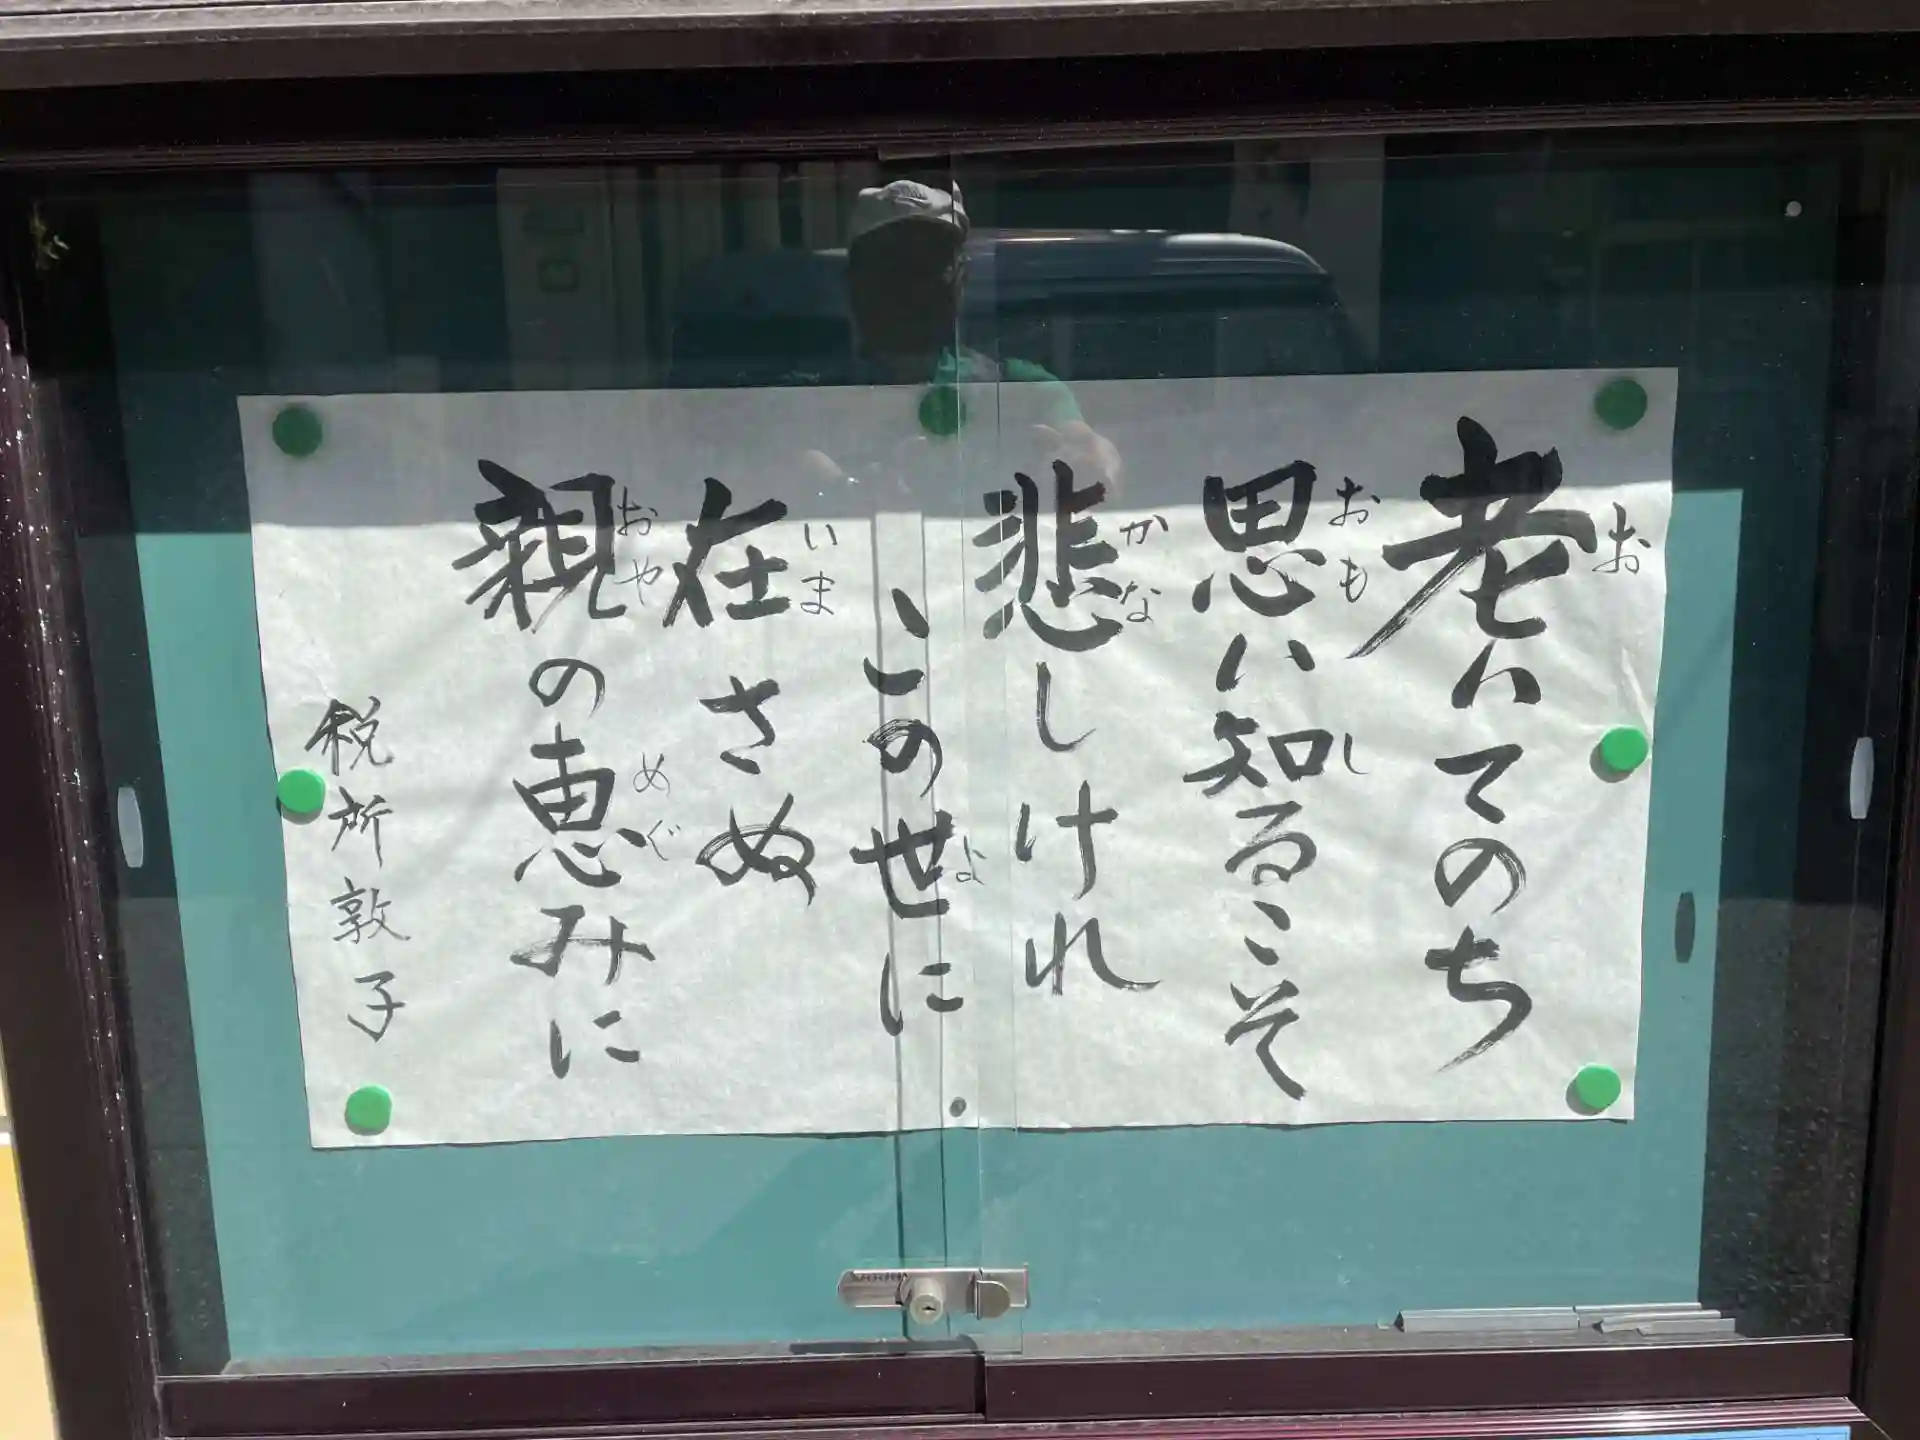 老いてのち
思い知るこそ
悲しけれ
この世に
在さぬ
親の恵みに
税所敦子
お
おも
し
かな
よ
いま
おや
めぐ